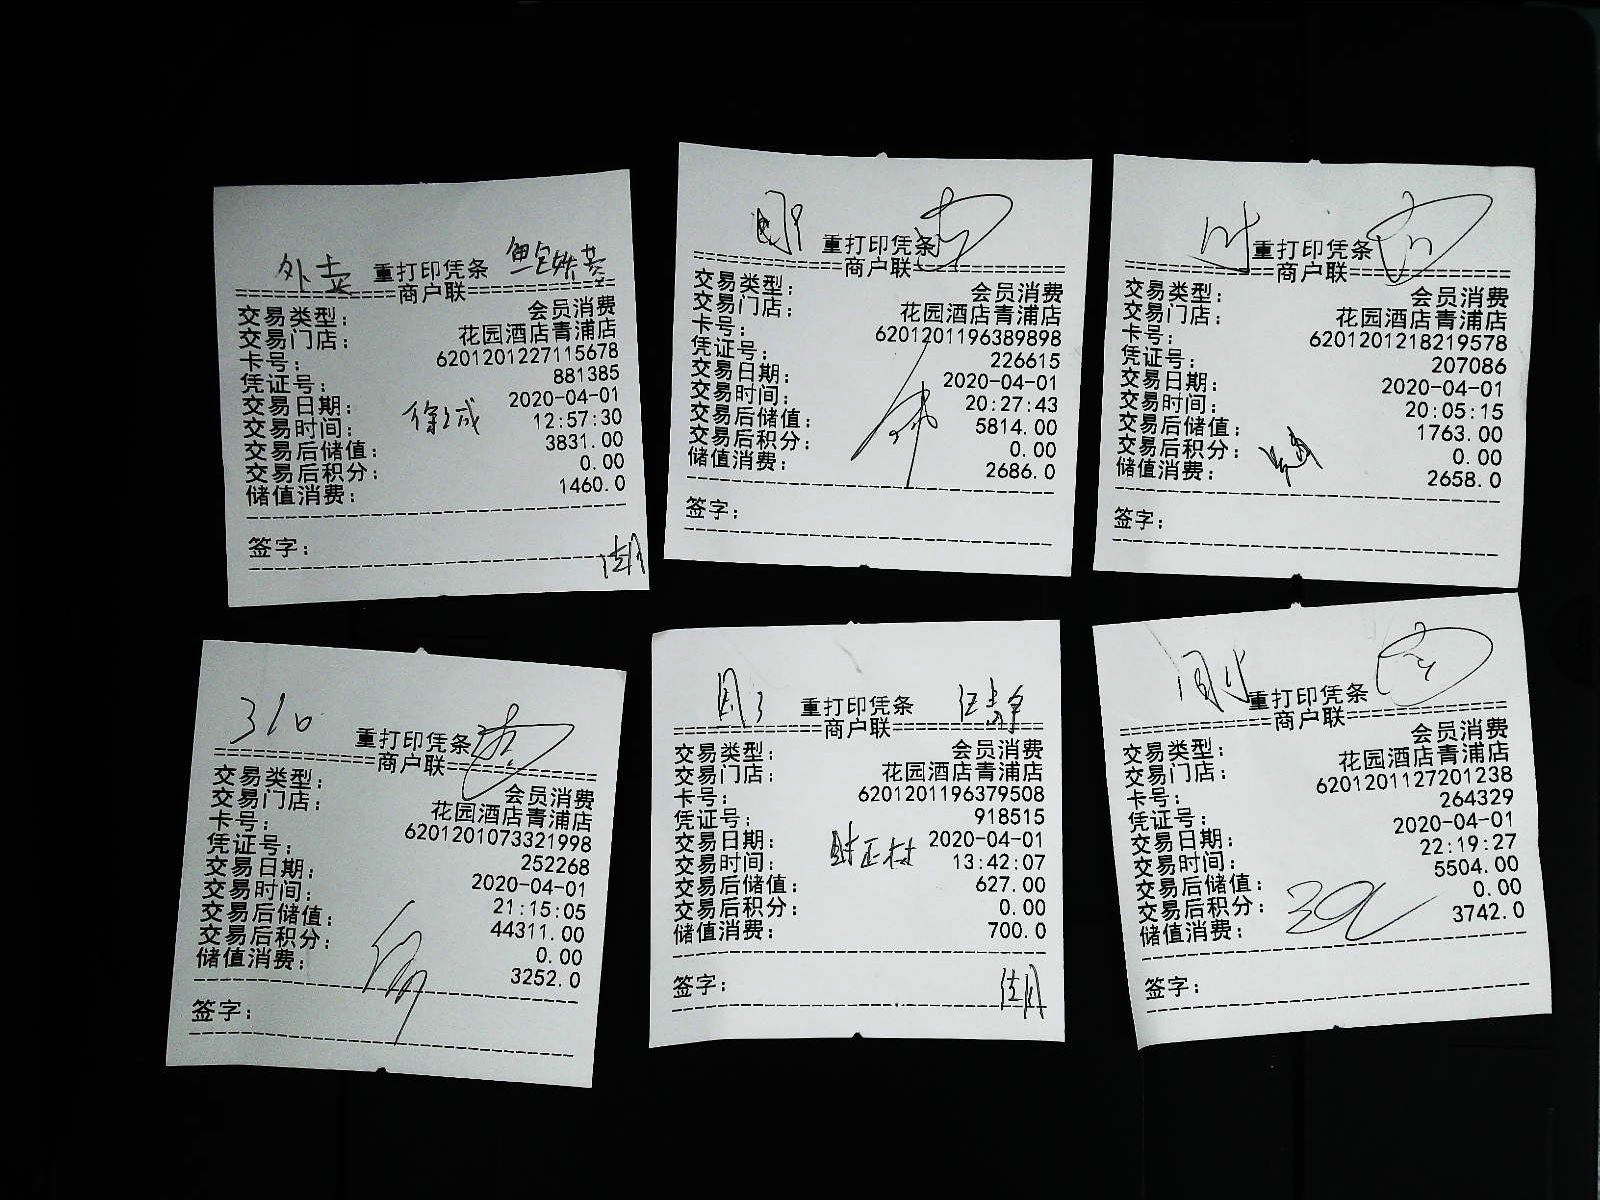 外卖
重打印凭条
=====商户联=====
交易类型: 会员消费
交易门店: 花园酒店青浦店
卡号: 6201201227115678
凭证号: 881385
交易日期: 2020-04-01
交易时间: 12:57:30
交易后储值: 3831.00
交易后积分: 0.00
储值消费: 1460.0
签字:
重打印凭条
=====商户联=====
交易类型: 会员消费
交易门店: 花园酒店青浦店
卡号: 6201201196389898
凭证号: 226615
交易日期: 2020-04-01
交易时间: 20:27:43
交易后储值: 5814.00
交易后积分: 0.00
储值消费: 2686.0
签字:
重打印凭条
=====商户联=====
交易类型: 会员消费
交易门店: 花园酒店青浦店
卡号: 6201201218219578
凭证号: 207086
交易日期: 2020-04-01
交易时间: 20:05:15
交易后储值: 1763.00
交易后积分: 0.00
储值消费: 2658.0
签字:
310
重打印凭条
=====商户联=====
交易类型: 会员消费
交易门店: 花园酒店青浦店
卡号: 6201201073321998
凭证号: 252268
交易日期: 2020-04-01
交易时间: 21:15:05
交易后储值: 44311.00
交易后积分: 0.00
储值消费: 3252.0
签字:
重打印凭条
=====商户联=====
交易类型: 会员消费
交易门店: 花园酒店青浦店
卡号: 6201201196379508
凭证号: 918515
交易日期: 2020-04-01
交易时间: 13:42:07
交易后储值: 627.00
交易后积分: 0.00
储值消费: 700.0
签字:
重打印凭条
=====商户联=====
交易类型: 会员消费
交易门店: 花园酒店青浦店
卡号: 6201201127201238
凭证号: 264329
交易日期: 2020-04-01
交易时间: 22:19:27
交易后储值: 5504.00
交易后积分: 0.00
储值消费: 3742.0
签字: